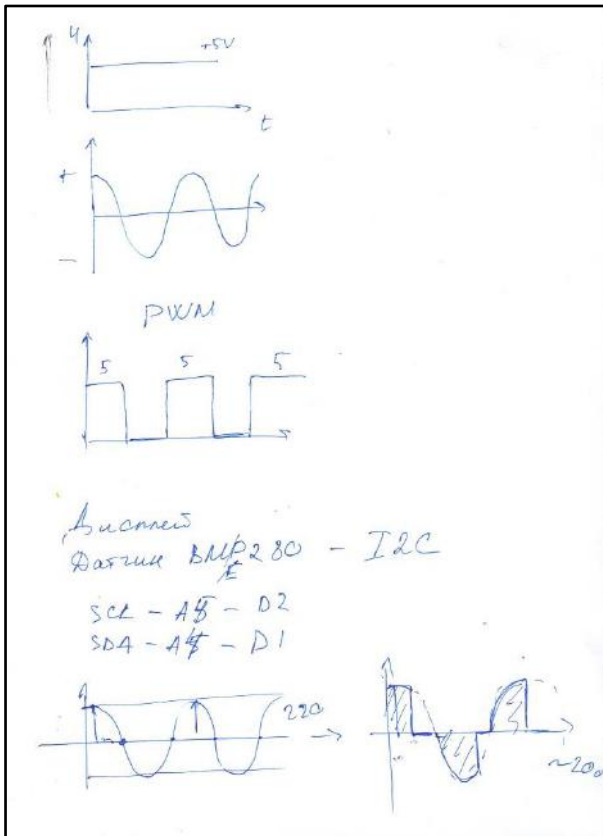 U
+5V
t
+
-
PWM
5 5 5
Дисплей
Датчик BMP280 - I2C
E
SCL - A5 - D2
SDA - A4 - D1
220
~200